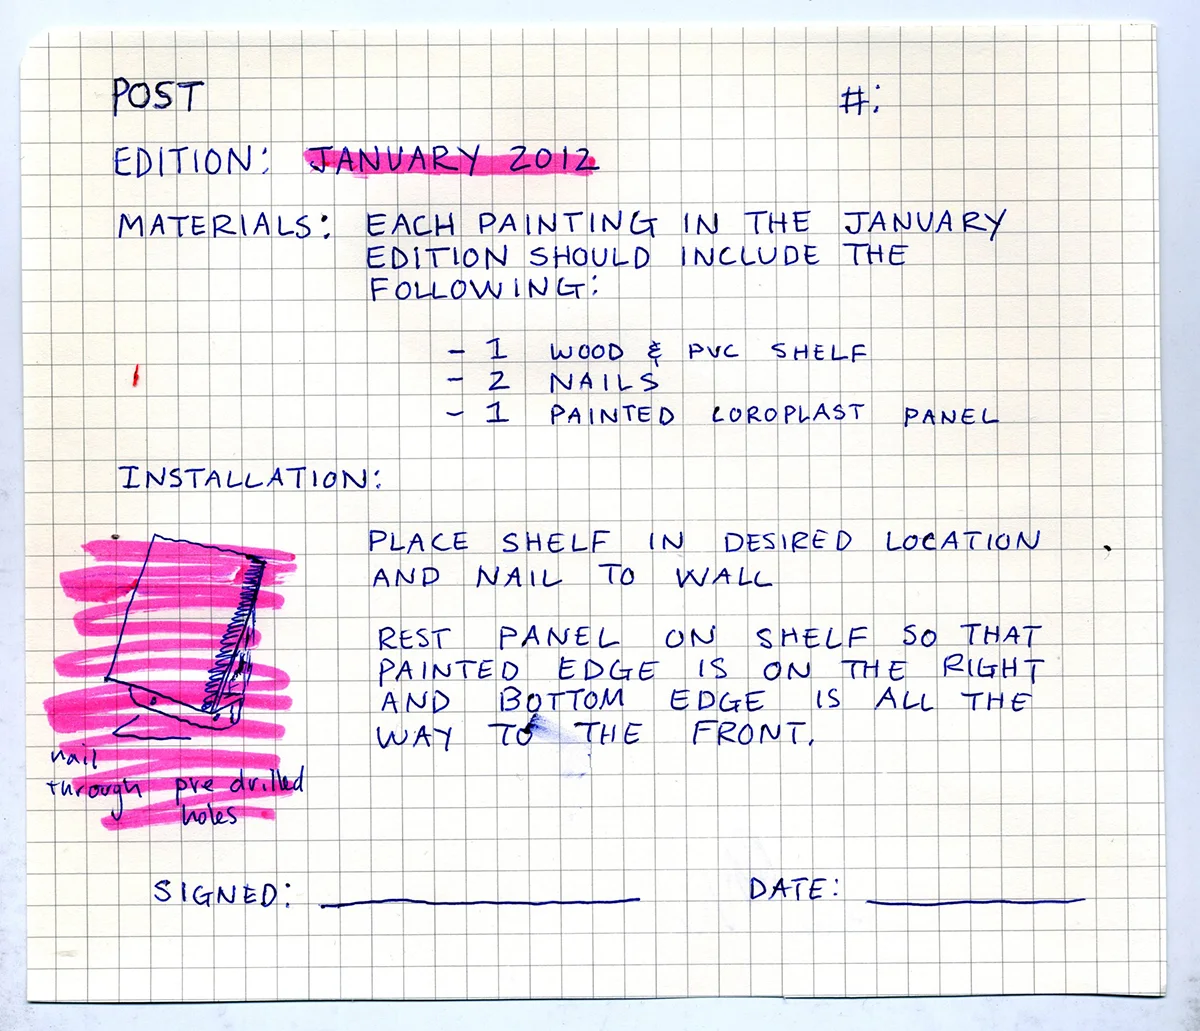 POST #:
EDITION: JANUARY 2012
MATERIALS: EACH PAINTING IN THE JANUARY
EDITION SHOULD INCLUDE THE
FOLLOWING:
- 1 WOOD & PVC SHELF
- 2 NAILS
- 1 PAINTED COROPLAST PANEL
INSTALLATION:
PLACE SHELF IN DESIRED LOCATION
AND NAIL TO WALL
REST PANEL ON SHELF SO THAT
PAINTED EDGE IS ON THE RIGHT
AND BOTTOM EDGE IS ALL THE
WAY TO THE FRONT.
nail
through pre drilled
holes
SIGNED: DATE: